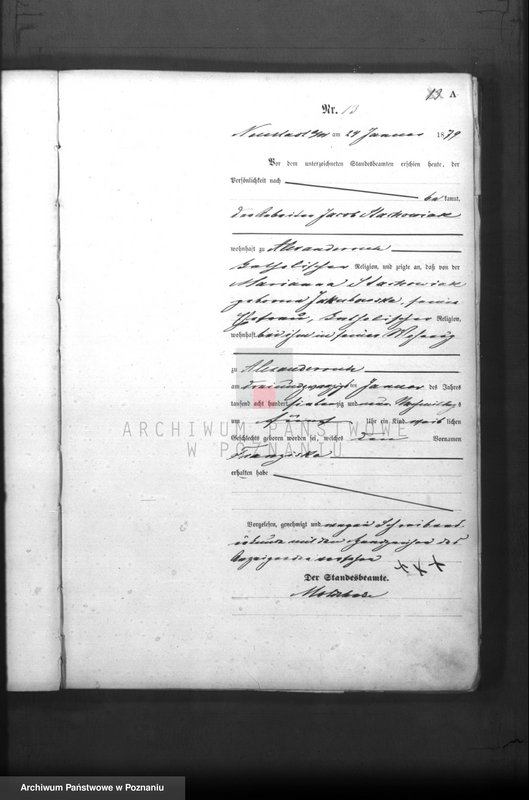 13 A
Nr. 13
Neustadt am 24 Januar 1879
Vor dem unterzeichneten Standesbeamten erschien heute, der
Persönlichkeit nach
be kannt,
der Arbeiter Jacob Stachowiak
wohnhaft zu Alexanderruh
katholischer Religion, und zeigte an, daß von der
Marianna Stachowiak
geborene Jakubowska, seiner
Ehefrau, katholischer Religion,
wohnhaft bei ihm in seiner Wohnung
zu Alexanderruh
am drei und zwanzig ten Januar des Jahres
tausend acht hundert siebenzig und neun Nachmittags
um Uhr ein Kind weib lichen
Geschlechts geboren worden sei, welches den Vornamen
Franziska
erhalten habe
Vorgelesen, genehmigt und wegen Schreibens
unkunde mit den Handzeichen des
Anzeigenden versehen +++
Der Standesbeamte.
ARCHIWUM PAŃSTWOWE
W POZNANIU
Archiwum Państwowe w Poznaniu